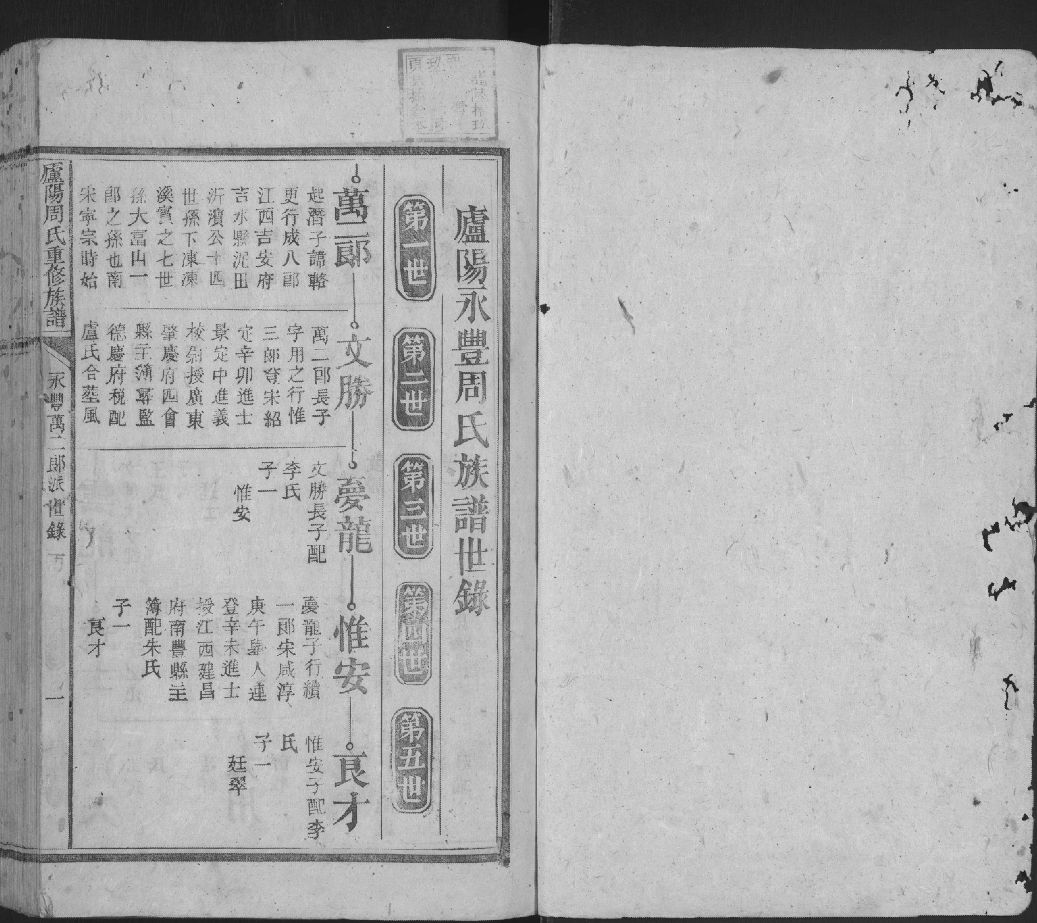 廬陽永豐周氏族譜世錄
第一世
第二世
第三世
第四世
第五世
萬二郎
文勝
夢龍
惟安
良才
起潛子諱輅
更行成八郎
江西吉安府
吉水縣泥田
沂濱公十四
世孫下涷涷
溪賓之七世
孫大富山一
郎之孫也南
宋寧宗時始
萬二郎長子
字用之行惟
三郎登宋紹
定辛卯進士
景定中進義
校尉授廣東
肇慶府四會
縣主簿尋監
德慶府稅配
盧氏合葬風
文勝長子配
李氏
子一
惟安
夢龍子行續
一郎宋咸淳
庚午舉人連
登辛未進士
授江西建昌
府南豐縣主
簿配朱氏
子一
良才
惟安子配李
氏
子一
廷翠
廬陽周氏重修族譜
永豐萬二郎派世錄
一